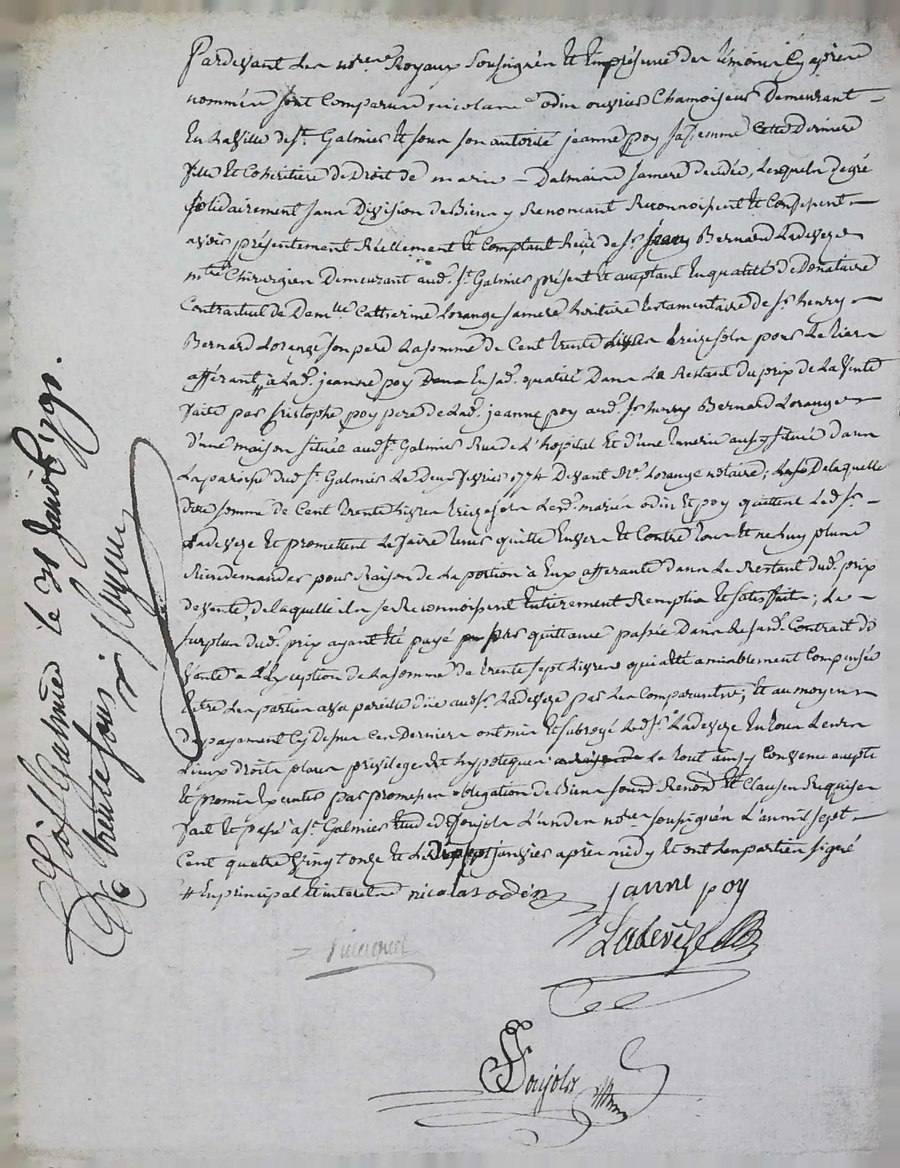 Pardevant les no.res Royaux soussignés et En présence des témoins Cy après
nommés sont Comparus nicolas odin ouvrier Chamoiseur Demeurant
En la Ville de st. Galmier et sous son autorité jeanne poy sa femme Cette Derniere
fille et Cohéritière de Droit de marie Dalmais sa mere decédée, Lesquels de gré
solidairement sans Division de Biens y Renonçant Reconnoissent et Confessent
avoir présentement Réellement et Comptant Reçu de sr. jean Bernard Ladeveze
mtre Chirurgien Demeurant aud. st. Galmier présent et acceptant En qualité de Donataire
Contractuel de Dam.lle Catherine Lorange sa mere héritière testamentaire de sr. henry
Bernard Lorange son pere La somme de Cent trente Livres treize sols pour Le tiers
afférant à Lad. jeanne poy En sad. qualité Dans Le Restant du prix de La Vente
faite par Cristophe poy pere de Lad. jeanne poy aud. sr. henry Bernard Lorange
d'une maison située aud. st. Galmier Rue de L'hopital et d'une aussy située dans
La paroisse dud. st. Galmier Le Deux février 1774 Devant Me. Lorange notaire; De laquelle
ditte somme de Cent trente Livres treize sols Lesd. mariés odin et poy quittent Led. sr.
Ladeveze et promettent Le faire tenir quitte Envers et Contre tous et ne luy plus
Rien demander pour Raison de La portion à Eux afferante dans Le Restant dud. prix
de vente, de laquelle ils se Reconnoissent Entierement Remplis et satisfaits; Le
surplus dud. prix ayant été payé par quittance passée Dans Contrat de
Vente à L'Exception de La somme de trente sept Livres qui a été amiablement Compensée
Entre Les parties a sa pareille düe aud. sr. Ladeveze par Les Comparants; Et au moyen
du payement Cy Dessus Ces Derniers ont mis et subrogé Led. sr. Ladeveze En tous Leurs
Lieux droits places privileges et hypoteques Le tout ainsy Convenu accepté
Et promis Executer par promesses obligation de Biens soumis. Renon. et Clauses Requises
fait et passé a st. Galmier Etude de Poujols L'un des no.res soussignés L'an mil sept
Cent quatre Vingt onze et Le Dix sept janvier après midy et ont Les parties signé
# En principal et interets nicolas oden
janne poy
Ladevèze
Poujols
Galmier le 31 Janvier 1791.
trente sous